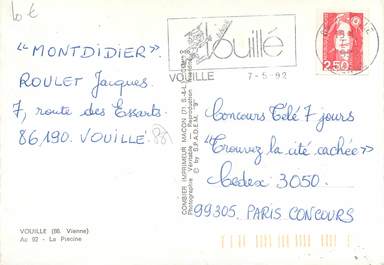 10 €
Vouillé
VOUILLE 7-5-92
2,50
"MONTDIDIER".
ROULET Jacques.
7, route des Essarts.
86,190. VOUILLÉ.
Concours Télé 7 jours
"Trouvez la cité cachée"
Cedex 3050.
99305. PARIS CONCOURS
COMBIER IMPRIMEUR MACON (71. S.-&-L.)
Photographie Véritable
© by S.P.A.D.E.M.
VOUILLE (86. Vienne)
Au 92 - La Piscine